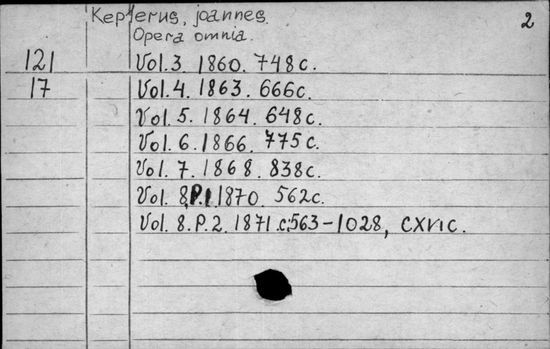 Keplerus, joannes. 2
Opera omnia.
121 Vol. 3. 1860. 748c.
17 Vol. 4. 1863. 666c.
Vol. 5. 1864. 648c.
Vol. 6. 1866. 775c.
Vol. 7. 1868. 838c.
Vol. 8.P.1 1870. 562c.
Vol. 8.P.2. 1871.c.563-1028, CXVIc.